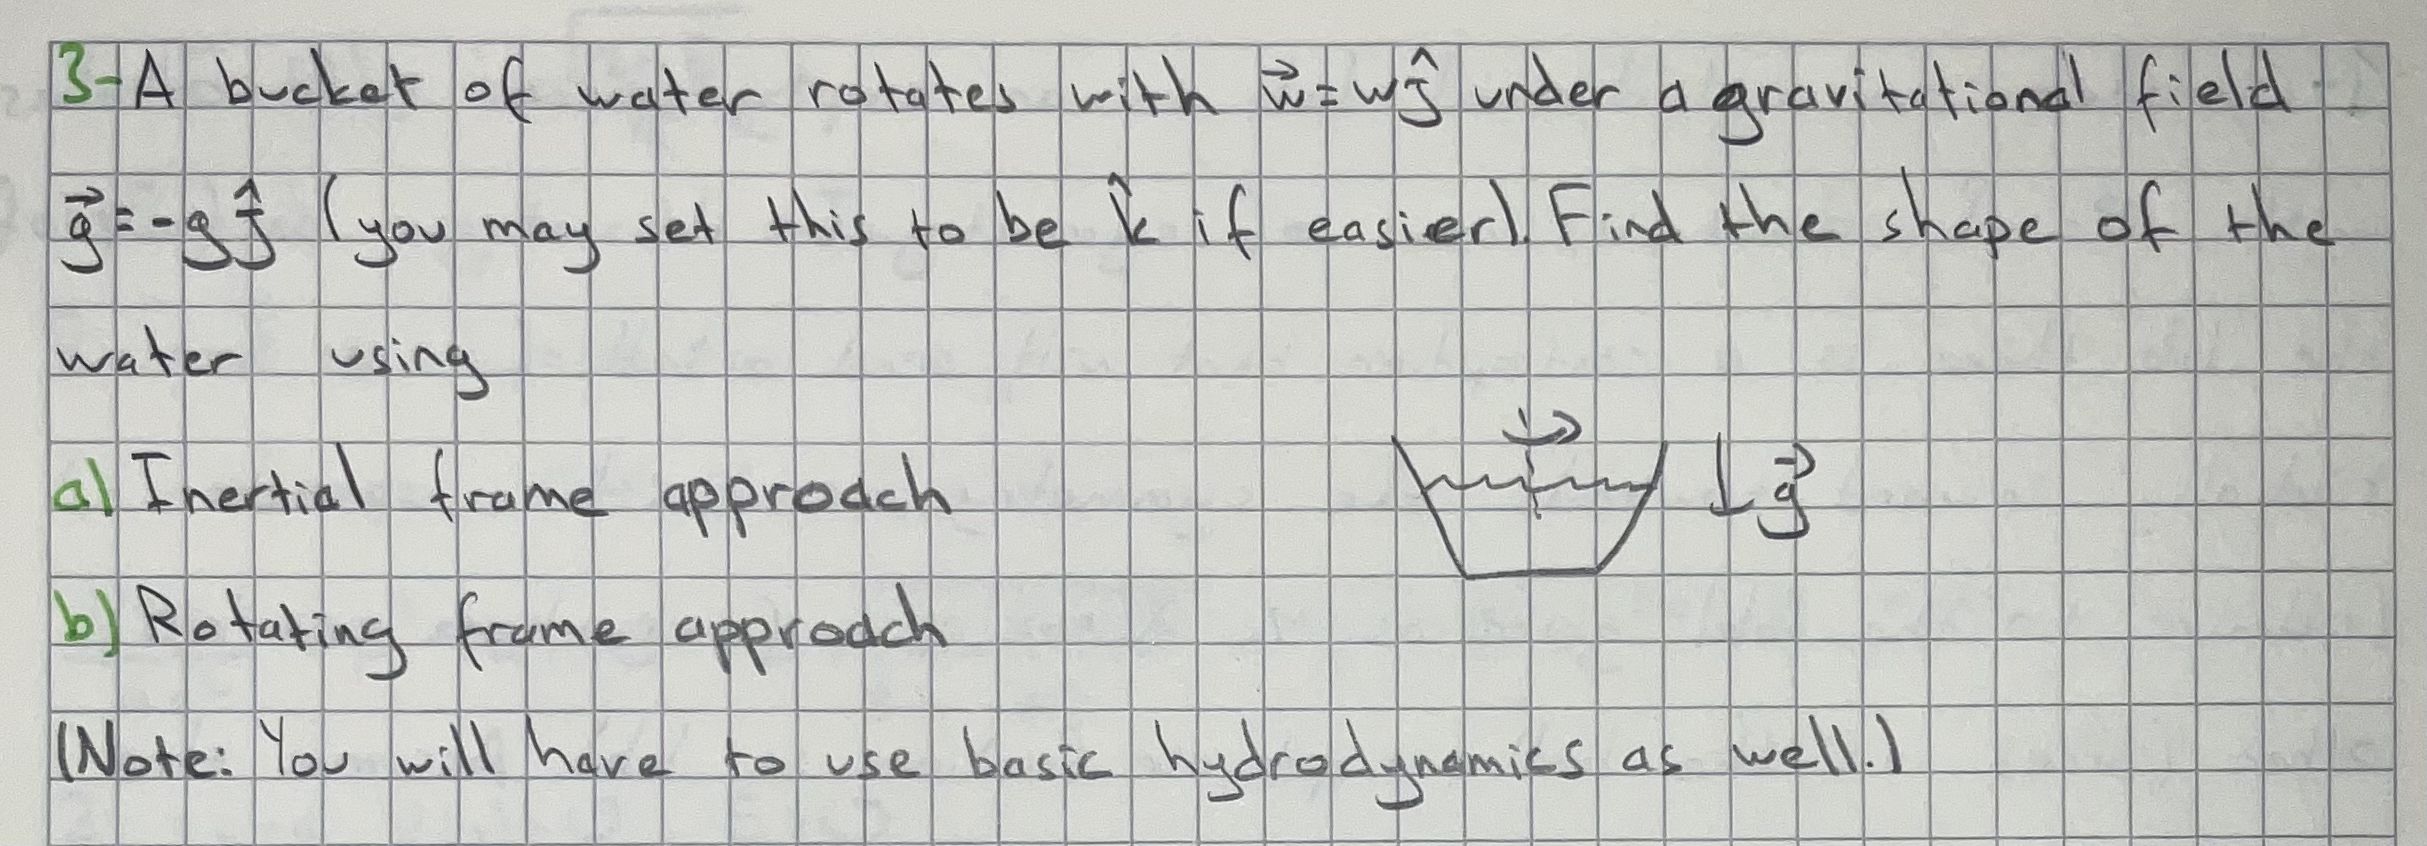 3-A bucket of water rotates with w⃗=wĵ under a gravitational field
g⃗=-gĵ (you may set this to be k̂ if easier). Find the shape of the
water using
a) Inertial frame approach
g⃗
b) Rotating frame approach
(Note: You will have to use basic hydrodynamics as well.)